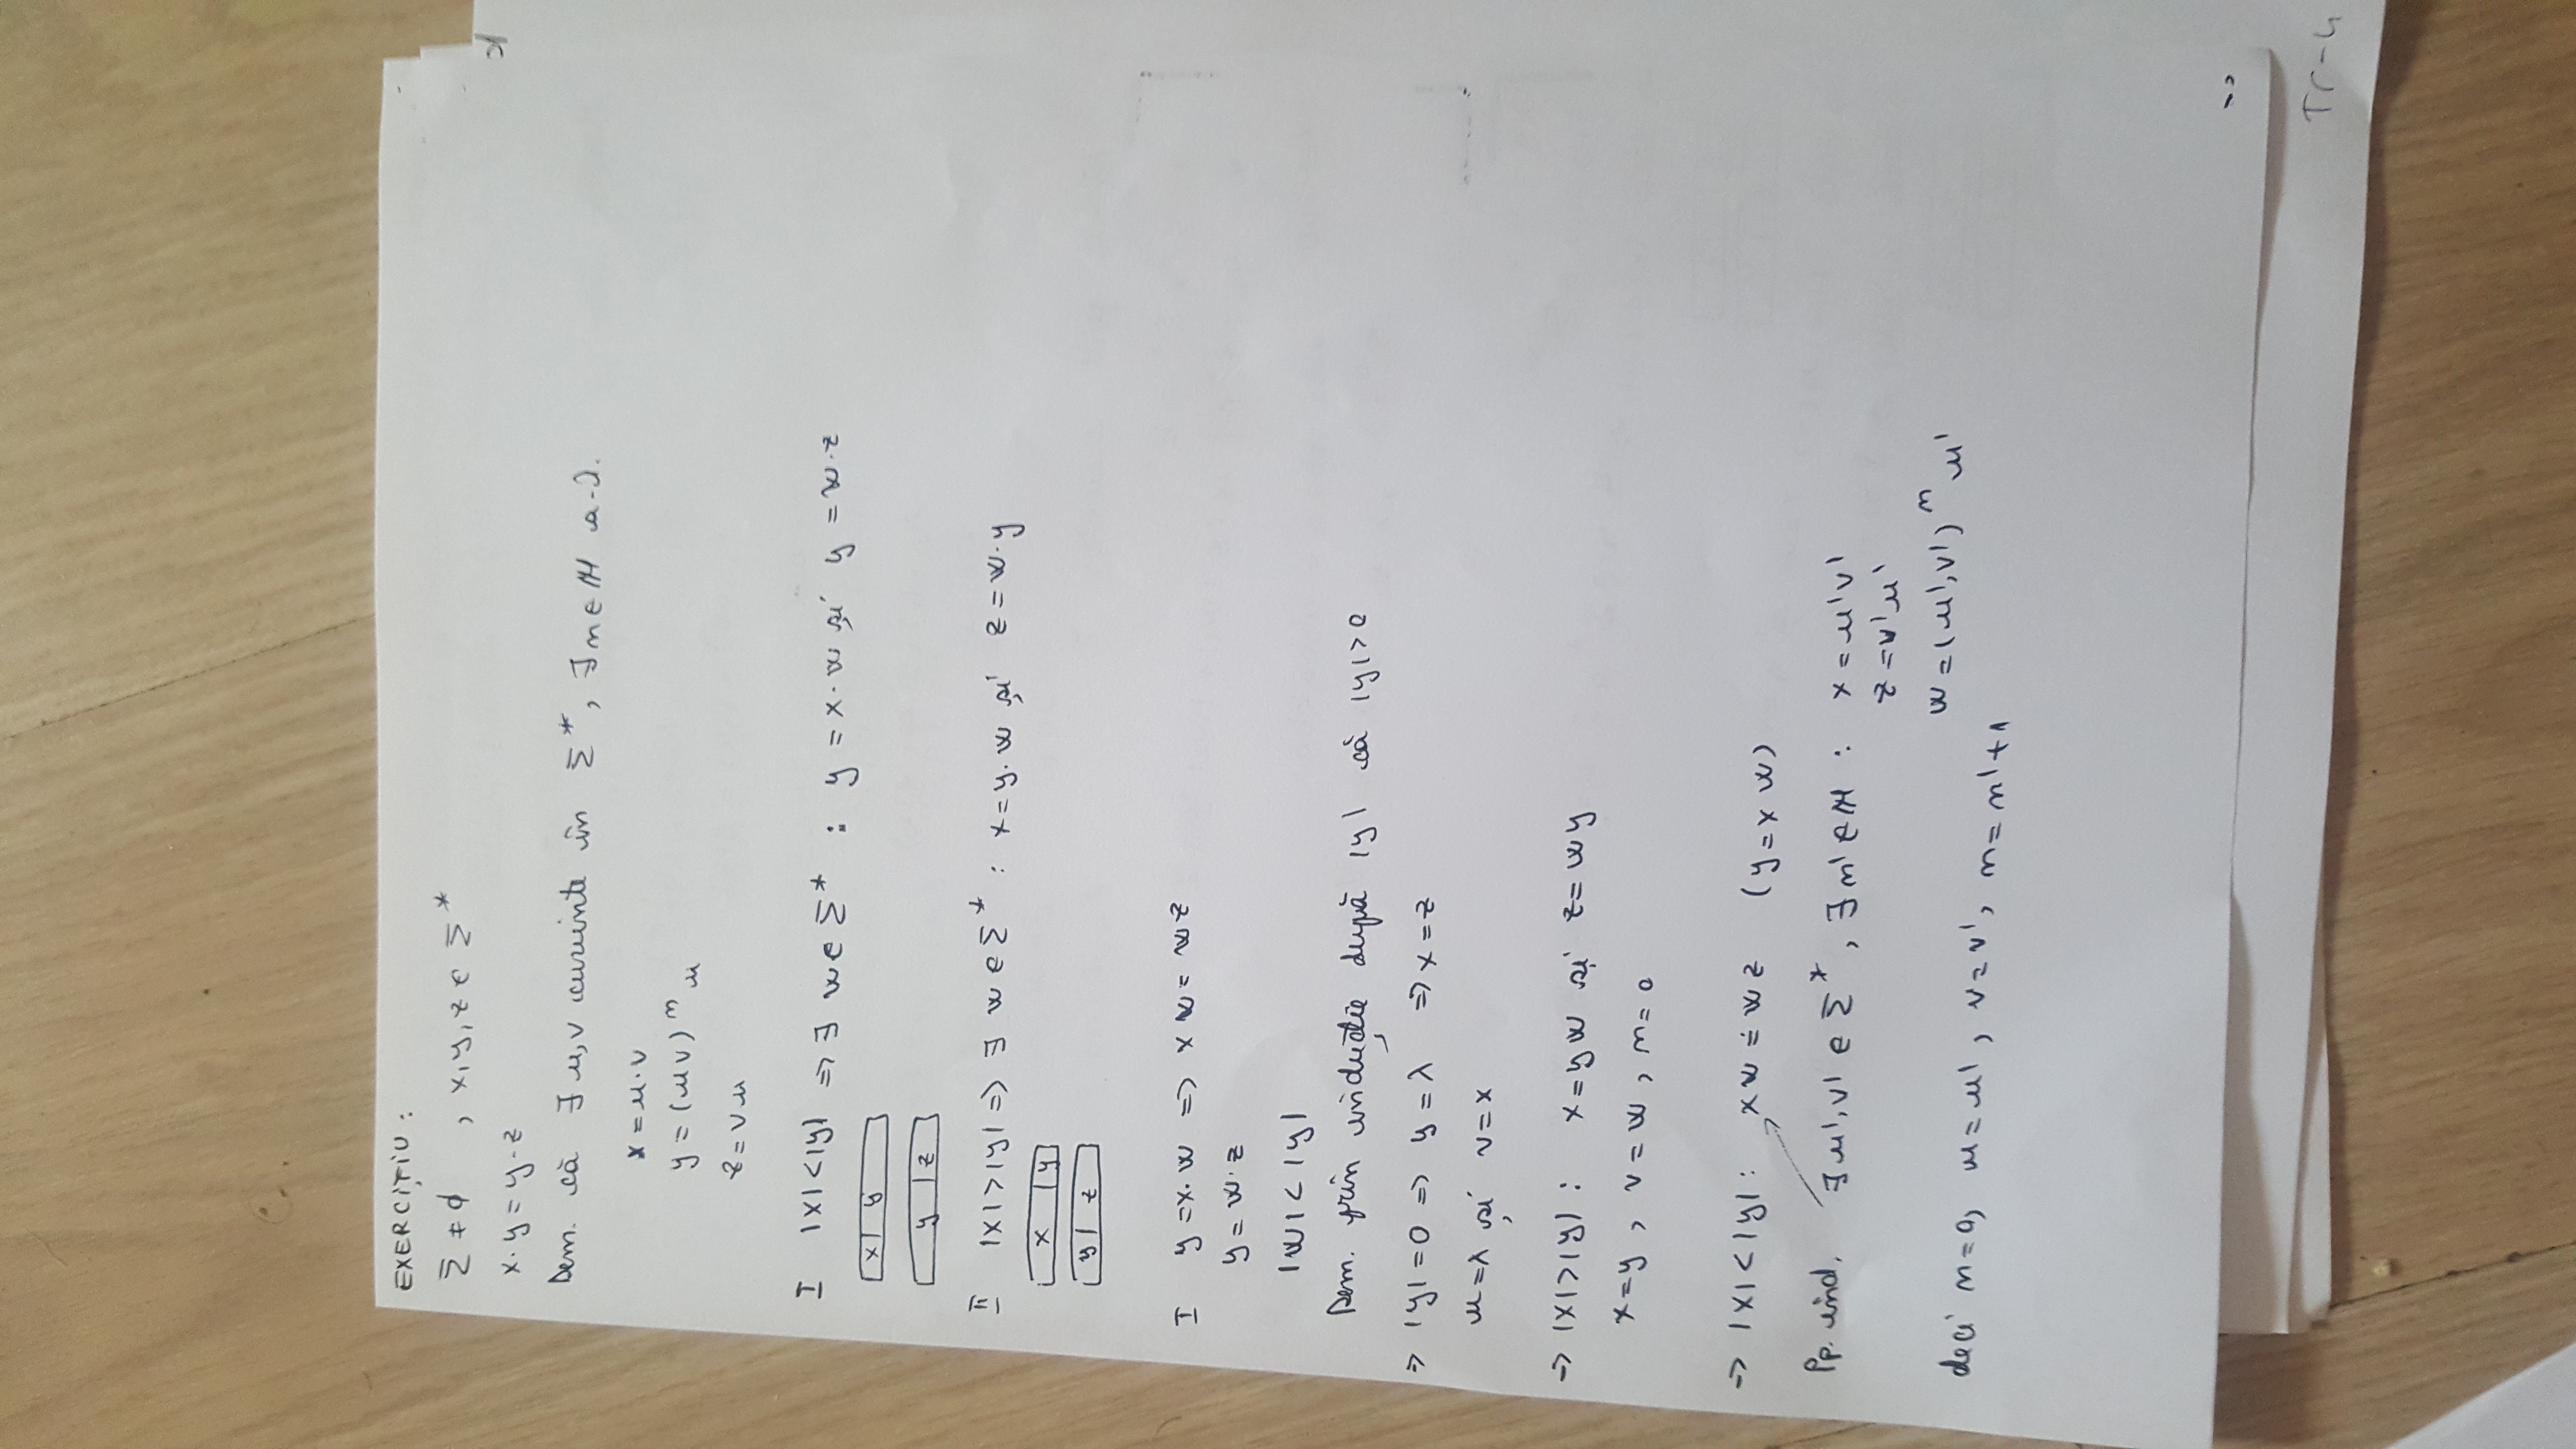 EXERCIȚIU:
Σ ≠ ∅ , x,y,z ∈ Σ*
x·y = y·z
Dem. că ∃ u,v cuvinte în Σ*, ∃ n∈ℕ a.î.
x = u·v
y = (uv)^n u
z = vu
I |x|<|y| => ∃ w∈Σ* : y = x·w și y = w·z
x| y
y |z
II |x|>|y| => ∃ w∈Σ* : x=y·w și z=w·y
x |y
y| z
I y=x·w => xw = wz
y = w·z
|w| < |y|
Dem. prin inducție după |y| că |y|>0
=> |y|=0 => y = λ => x = z
u=λ și v=x
-> |x|>|y| : x=yw și z=wy
x=y , v=w , n=0
-> |x|<|y| : xw = wz (y=xw)
Pp. ind. ∃ u',v' ∈ Σ*, ∃ n'∈ℕ : x = u'v'
z = v'u'
w = (u',v')^n u'
deci n=0, u=u', v=v', n=n'+1
Tr-4